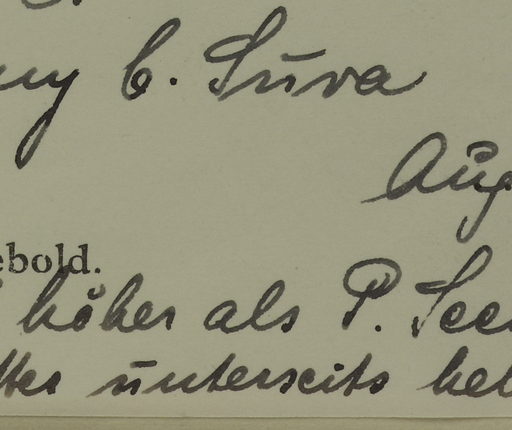 b. Suva
Aug
ebold.
höher als P. See
unterseits hel